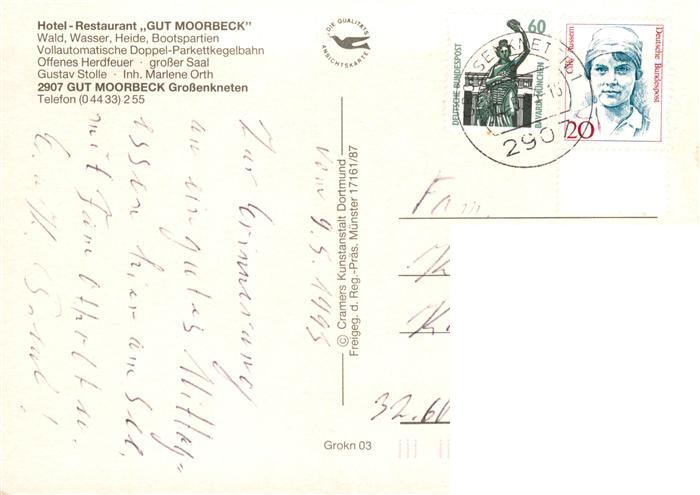 Hotel-Restaurant „GUT MOORBECK"
Wald, Wasser, Heide, Bootspartien
Vollautomatische Doppel-Parkettkegelbahn
Offenes Herdfeuer · großer Saal
Gustav Stolle · Inh. Marlene Orth
2907 GUT MOORBECK Großenkneten
Telefon (0 44 33) 2 55
DIE QUALITÄTS
ANSICHTSKARTE
60
DEUTSCHE BUNDESPOST
BAVARIA MÜNCHEN
Cilly Aussem
Deutsche Bundespost
20
2907
Zur Erinnerung
an ein gutes Mittag-
essen hier am See,
mit
vom 9.5.
© Cramers Kunstanstalt Dortmund
Freigeg. d. Reg.-Präs. Münster 17161/87
Fam.
Grokn 03